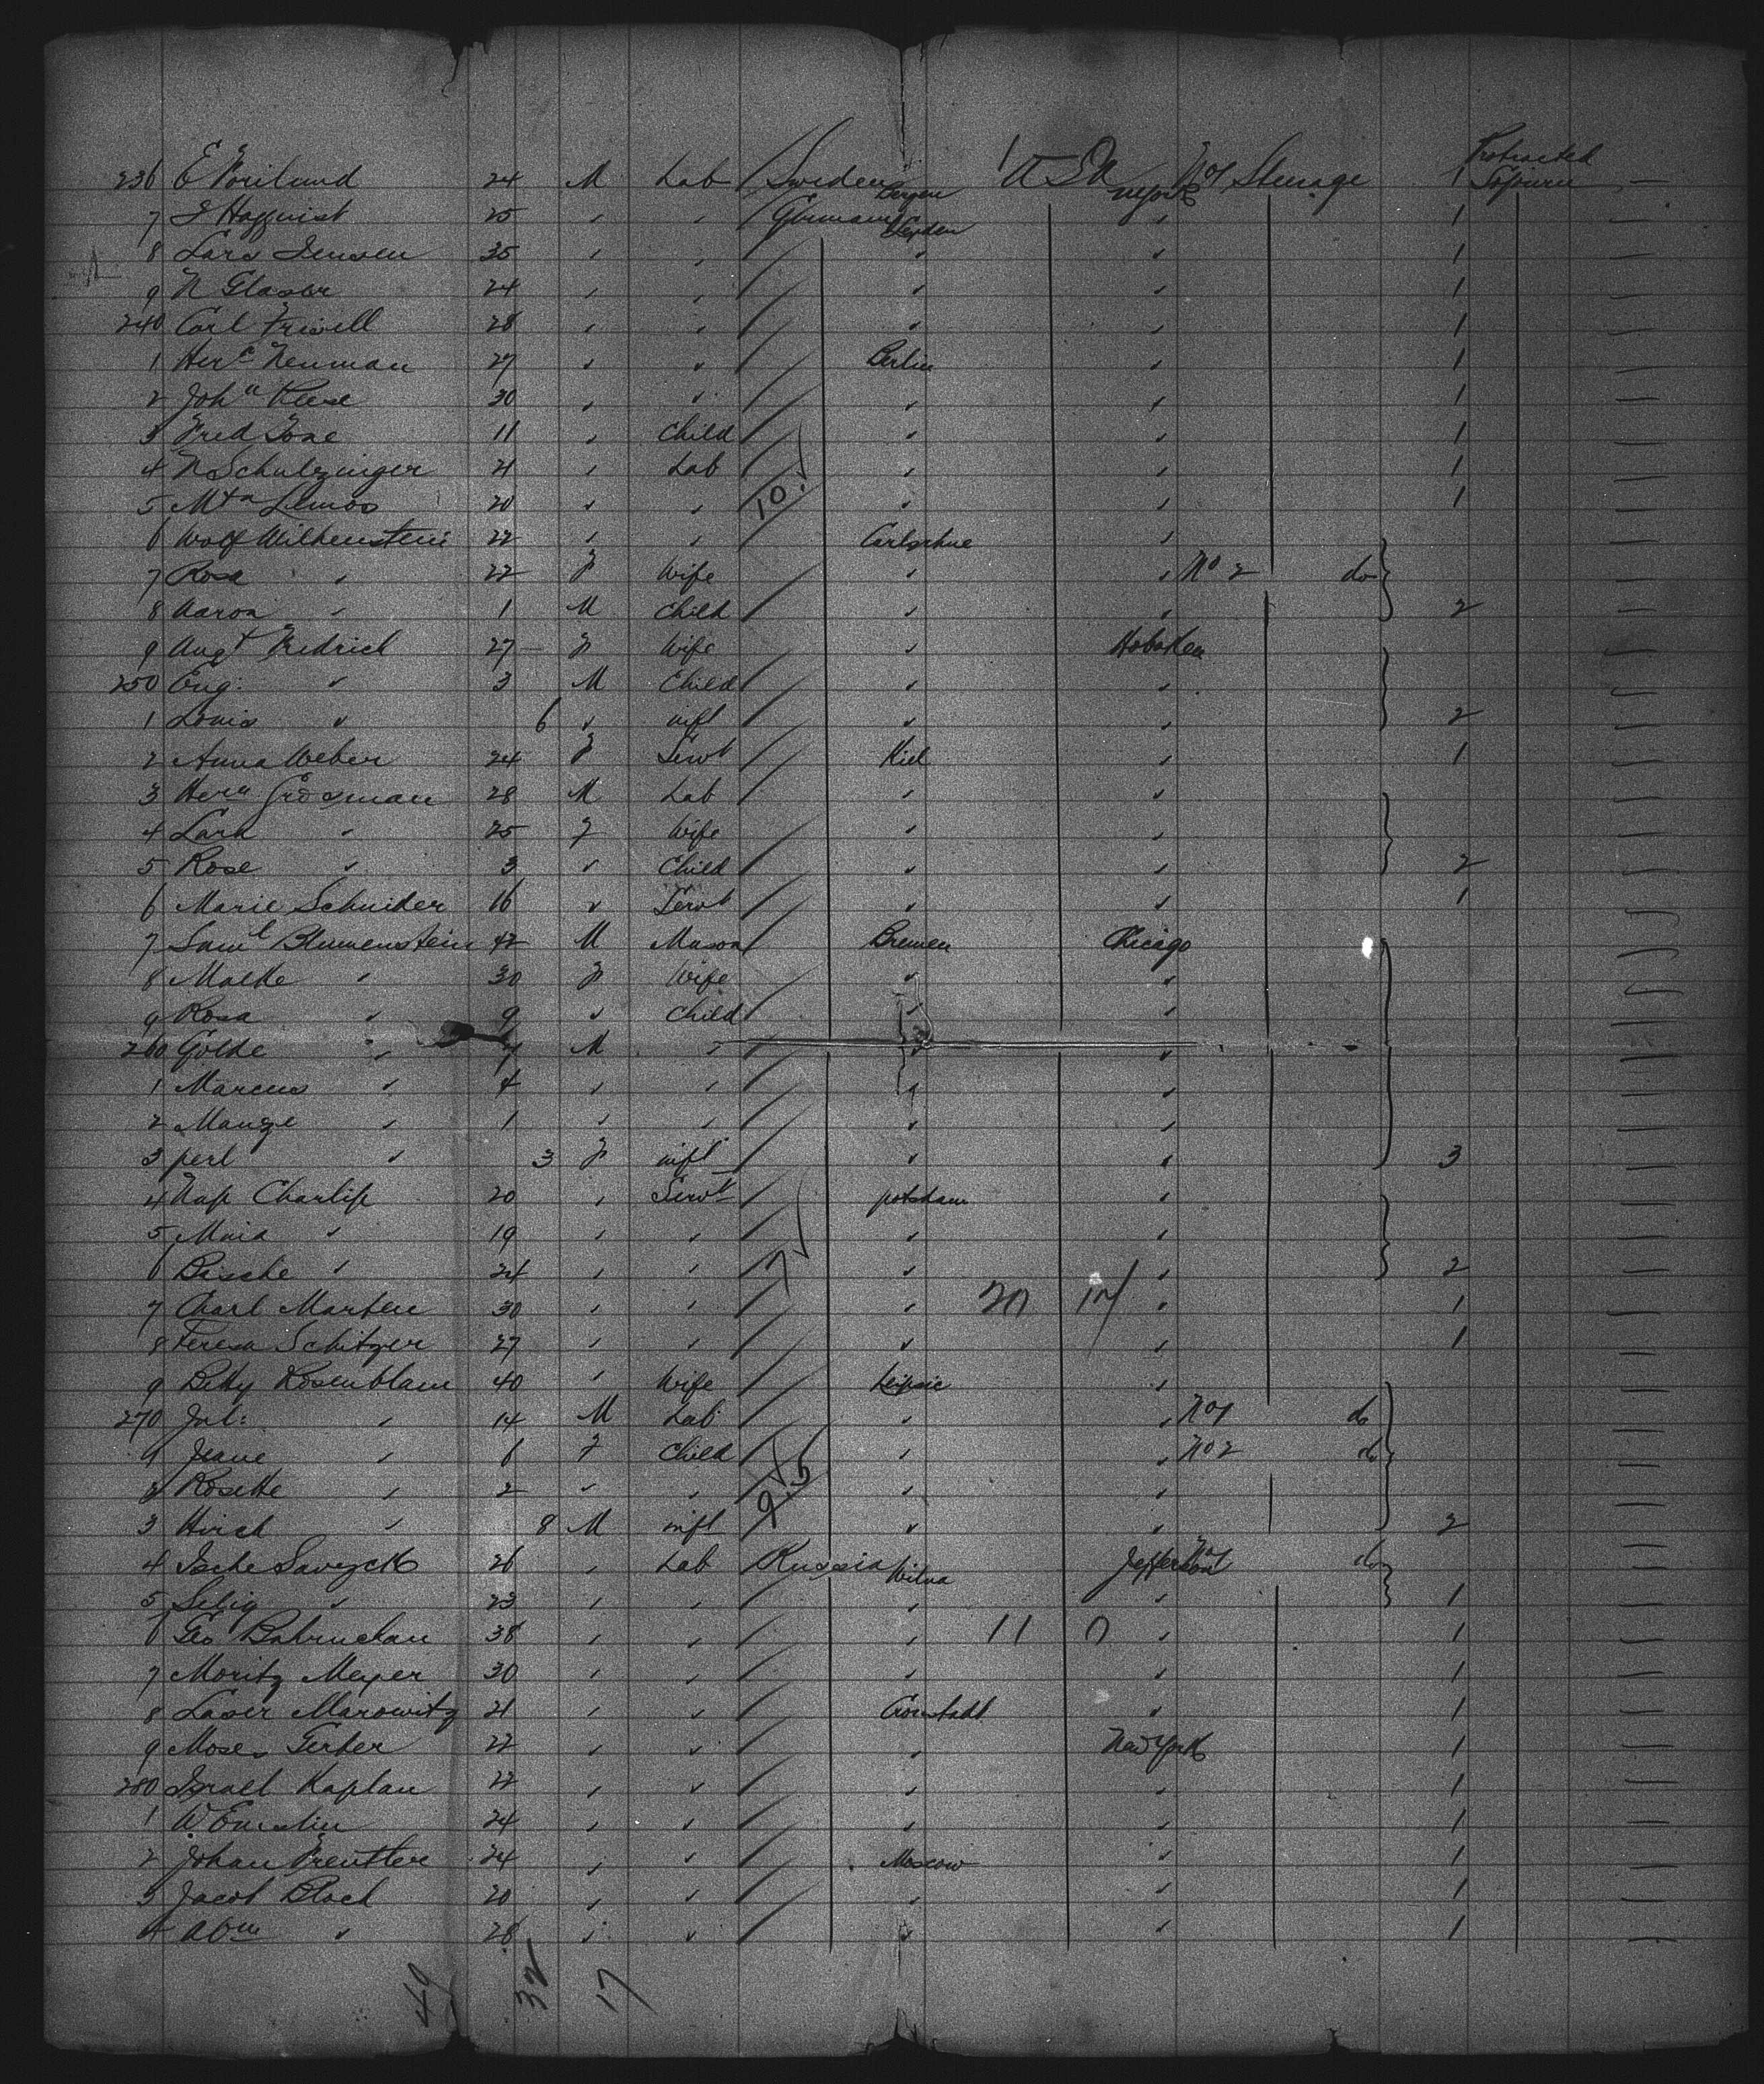 Protracted
236 E 24 M Lab Sweden U S A N York No 1 Steerage 1 Sojourn
7 25 " " Germany 1
8 Lars Jensen 35 " " " " 1
9 N Glaser 24 " " " " 1
240 Carl Friwell 28 " " " " 1
1 Herc Neuman 27 " " Berlin " 1
2 John Reese 30 " " " " 1
3 Fred 11 " Child " " 1
4 N Schulzinger 21 " Lab " " 1
5 Mta Lemos 20 " " 10 " " 1
6 Wolf Wilkenstein 22 " " Carlsrhue "
7 Rosa " 22 F Wife " " No 2 do
8 Aaron " 1 M Child " " 2
9 Augt Fredrich 27 F Wife " Hoboken
250 Eug: " 3 M Child " "
1 Louis " 6 " inft " " 2
2 Anna Weber 24 F Servt Kiel " 1
3 Hern Grosman 28 M Lab " "
4 Lara " 25 F Wife " "
5 Rose " 3 " Child " " 2
6 Marie Schnider 16 " Servt " " 1
7 Saml Blumenstein 42 M Mason Bremen Chicago
8 Malke " 30 F Wife " "
9 Rosa " 9 " Child " "
260 Golde " 7 M " " "
1 Marcus " 4 " " " "
2 Mange " 1 " " " "
3 perl " 3 F inft " " 3
4 Charlip 20 " Servt potsdam "
5 " 19 " " " "
6 Basche " 24 " " 7 " " 2
7 Charl Marten 30 " " " 20 17 " 1
8 Teresa Schitzer 27 " " " " 1
9 Betty Rosenblam 40 " Wife Leipsic "
270 Jul: " 14 M Lab " " No 1 do
1 Jeane " 6 F Child " " No 2 do
2 Rosette " 2 " " 9.5 " "
3 Hirch " 8 M inft " " 2
4 26 " Lab Russia Wilna No 1 do
5 Selig " 23 " " " " 1
6 Geo 38 " " " 11 0 " 1
7 Moritz Meyer 30 " " " " 1
8 Laser Marowitz 21 " " Cronstadt " 1
9 Moses Ferber 22 " " " New York 1
280 Israel Kaplan 22 " " " " 1
1 W 24 " " " " 1
2 Johan 24 " " Moscow " 1
3 Jacob Bloch 20 " " " " 1
4 Abm " 28 " " " " 1
49 32 17